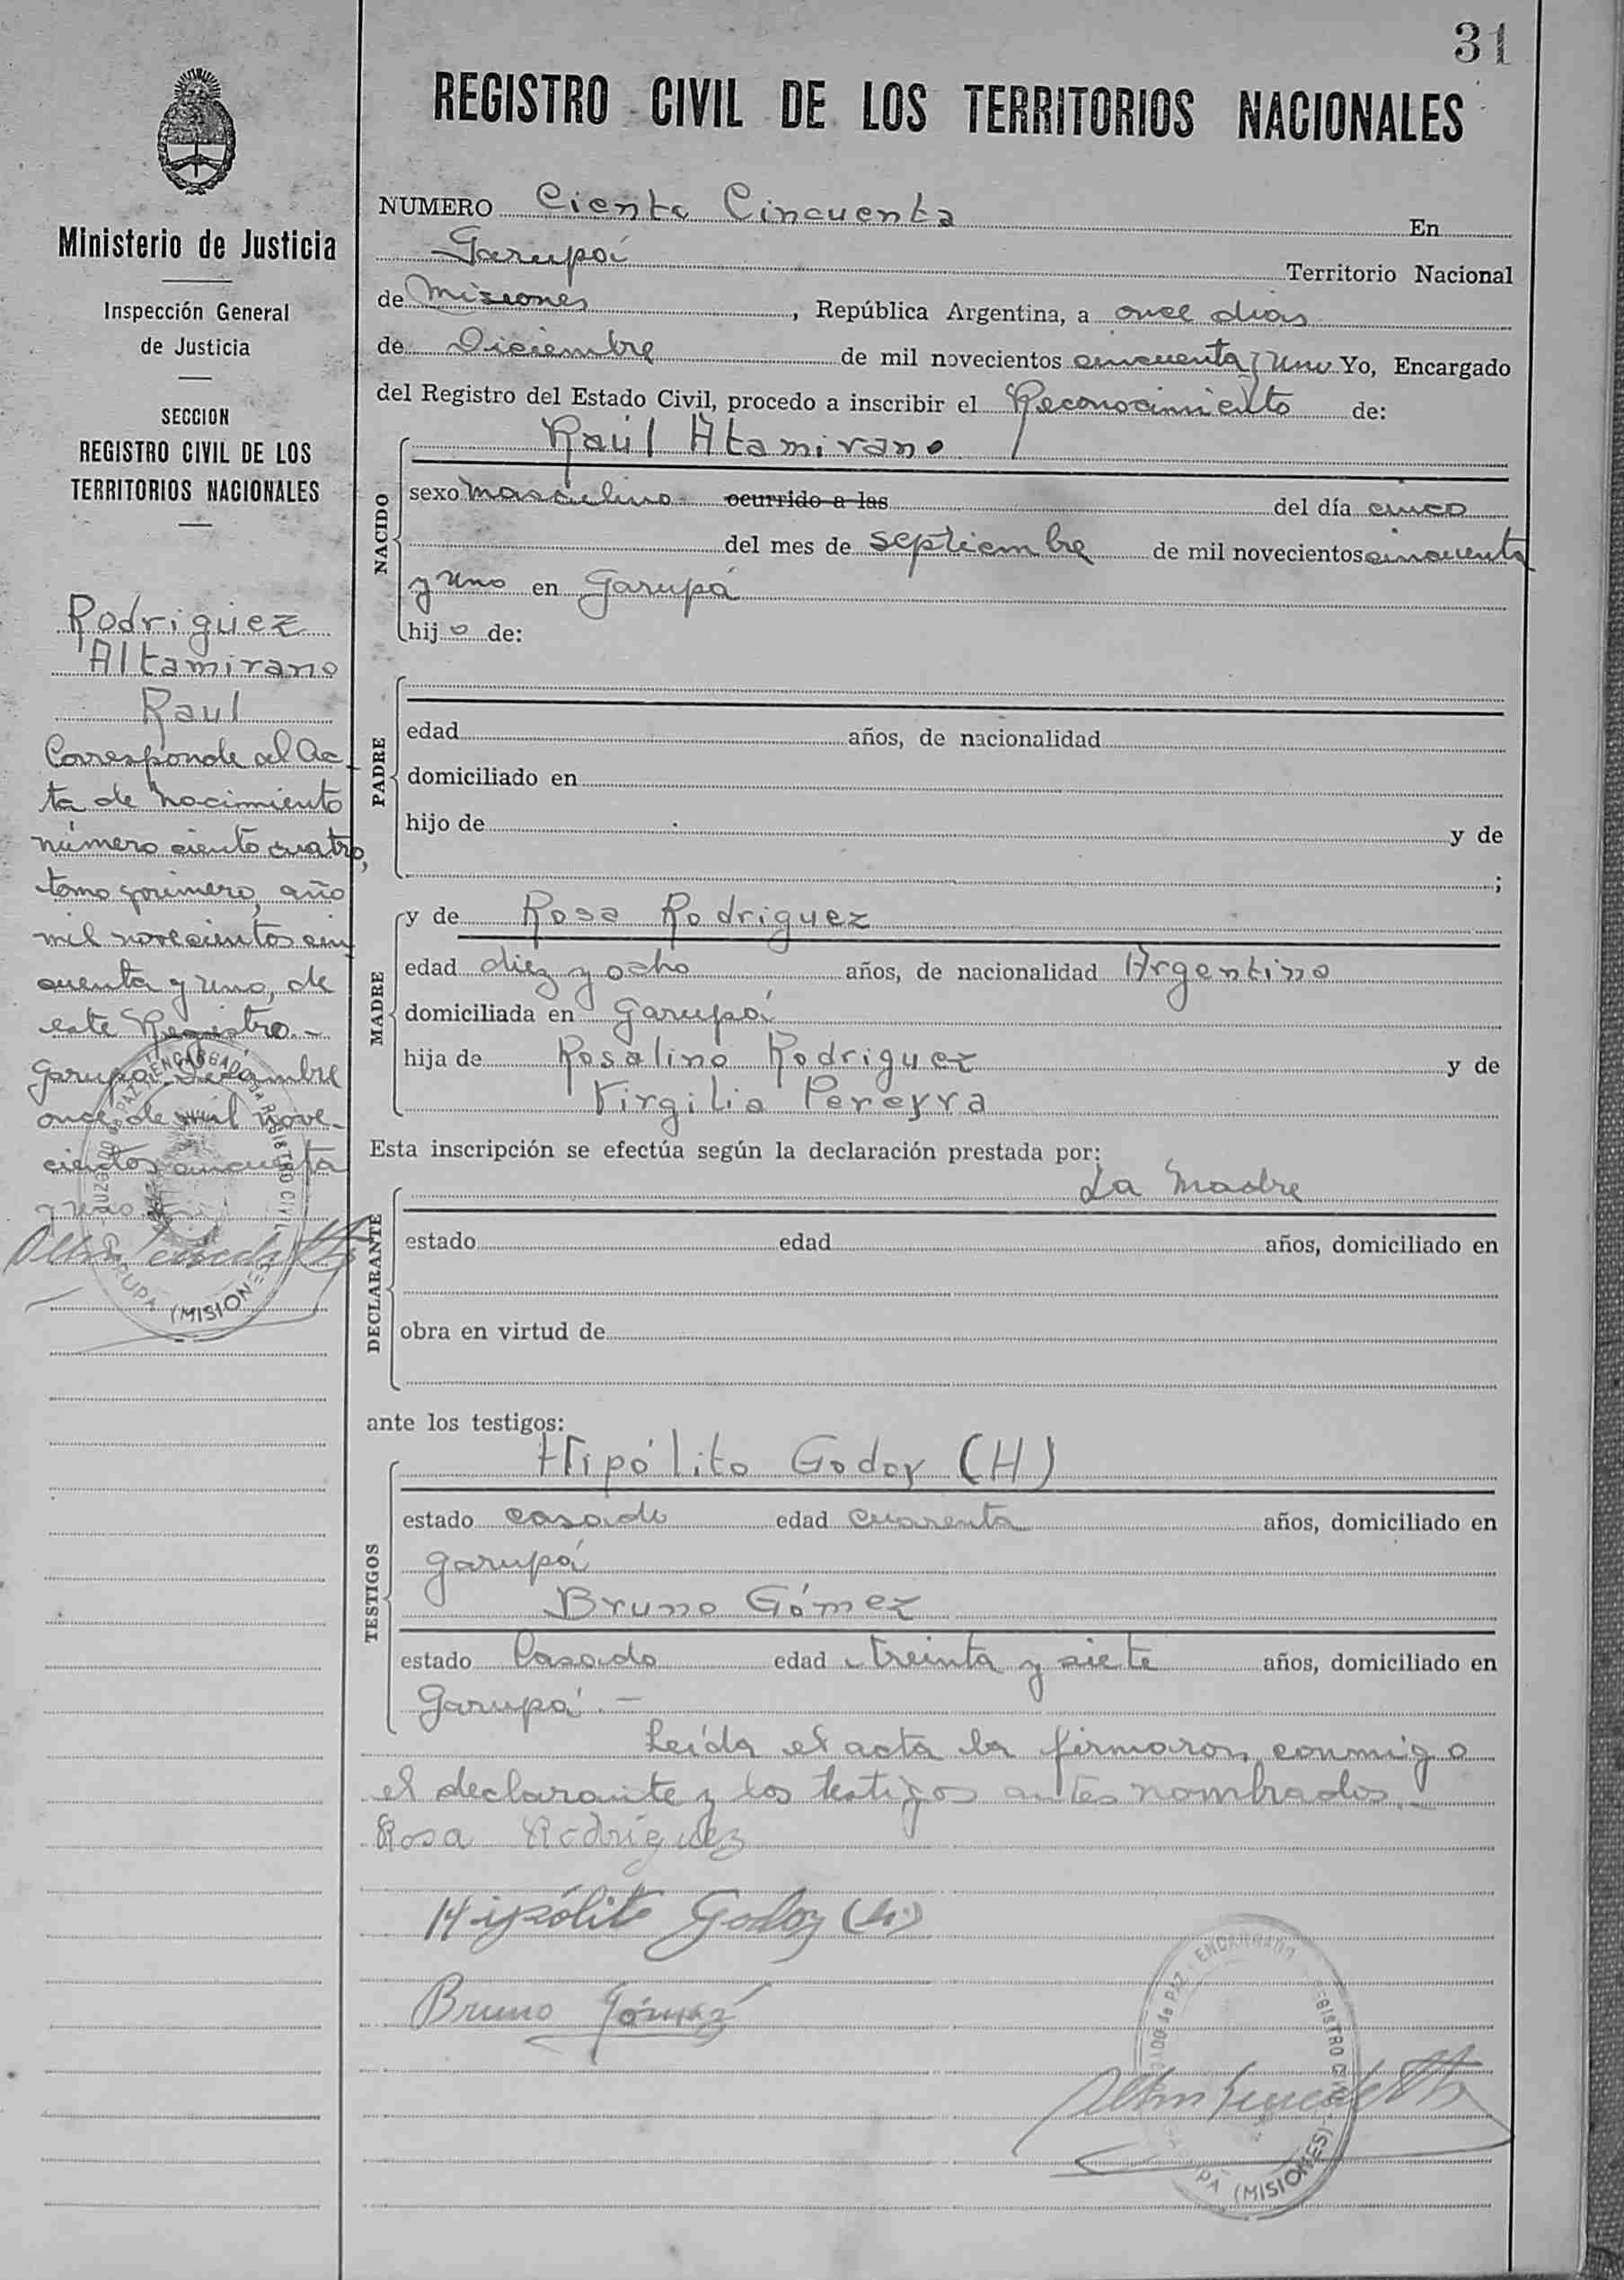 31
REGISTRO CIVIL DE LOS TERRITORIOS NACIONALES
Ministerio de Justicia
Inspección General
de Justicia
SECCION
REGISTRO CIVIL DE LOS
TERRITORIOS NACIONALES
Rodriguez
Altamirano
Raul
Corresponde al Ac-
ta de Nacimiento
número ciento cuatro,
tomo primero, año
mil novecientos cin
cuenta y uno, de
este Registro.-
Garupá Diciembre
once de mil nove-
cientos cincuenta
y uno
ENCARGADO REGISTRO CIVIL
GARUPA (MISIONES)
NUMERO Ciento Cincuenta En
Garupá Territorio Nacional
de Misiones, República Argentina, a once dias
de Diciembre de mil novecientos cincuenta y uno Yo, Encargado
del Registro del Estado Civil, procedo a inscribir el Reconocimiento de:
NACIDO
Raúl Altamirano
sexo masculino ocurrido a las del día cinco
del mes de septiembre de mil novecientos cincuenta
y uno en Garupá
hijo de:
PADRE
edad años, de nacionalidad
domiciliado en
hijo de y de
;
MADRE
y de Rosa Rodriguez
edad diez y ocho años, de nacionalidad Argentina
domiciliada en Garupá
hija de Rosalino Rodriguez y de
Virgilia Pereyra
Esta inscripción se efectúa según la declaración prestada por:
DECLARANTE
La Madre
estado edad años, domiciliado en
obra en virtud de
ante los testigos:
TESTIGOS
Hipólito Godoy (H)
estado casado edad cuarenta años, domiciliado en
Garupá
Bruno Gómez
estado Casado edad treinta y siete años, domiciliado en
Garupá.-
Leída el acta la firmaron conmigo
el declarante y los testigos antes nombrados.-
Rosa Rodriguez
Hipólito Godoy (h)
Bruno Gómez
JUZGADO de PAZ - ENCARGADO REGISTRO CIVIL
GARUPA (MISIONES)